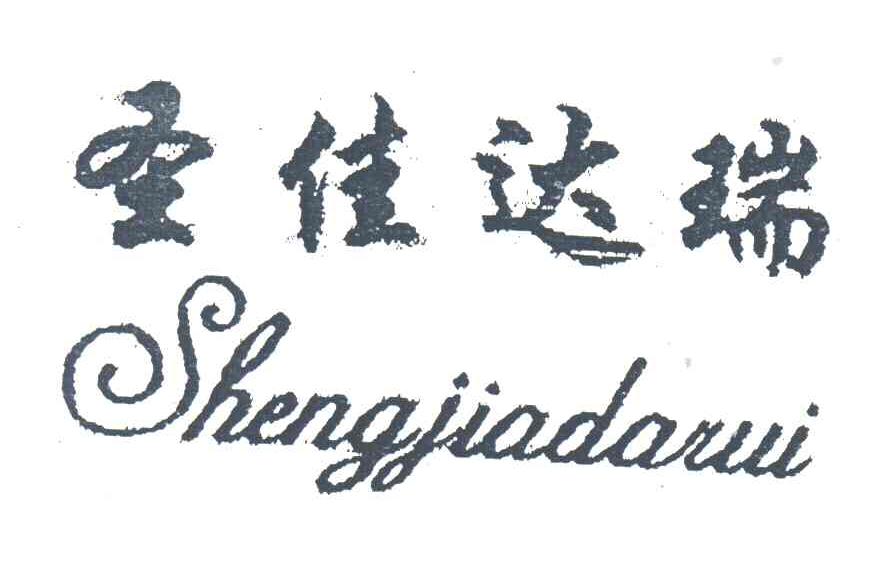 圣佳达瑞
Shengjiadarui